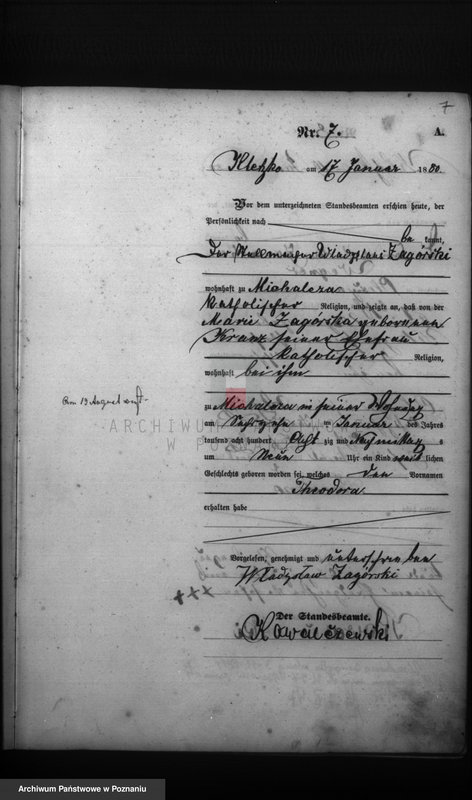 7
Nr. 7. A.
Kletzko am 17 Januar 1880
Vor dem unterzeichneten Standesbeamten erschien heute, der
Persönlichkeit nach
be kannt,
Der Stellmacher Wladyslaus Zagórski
wohnhaft zu Michalcza
katholischer Religion, und zeigte an, daß von der
Marie Zagórska geborenen
Kranz seiner Ehefrau
katholischer Religion,
wohnhaft bei ihm
zu Michalcza in seiner Wohnung
am Januar des Jahres
tausend acht hundert Acht zig und Nachmittags
um Neun Uhr ein Kind lichen
Geschlechts geboren worden sei, welches den Vornamen
Theodora
erhalten habe
Am 13 August
ARCHIWUM
Vorgelesen, genehmigt und unterschrieben
Władysław Zagórski
+++
Der Standesbeamte.
Kowalczewski
Archiwum Państwowe w Poznaniu